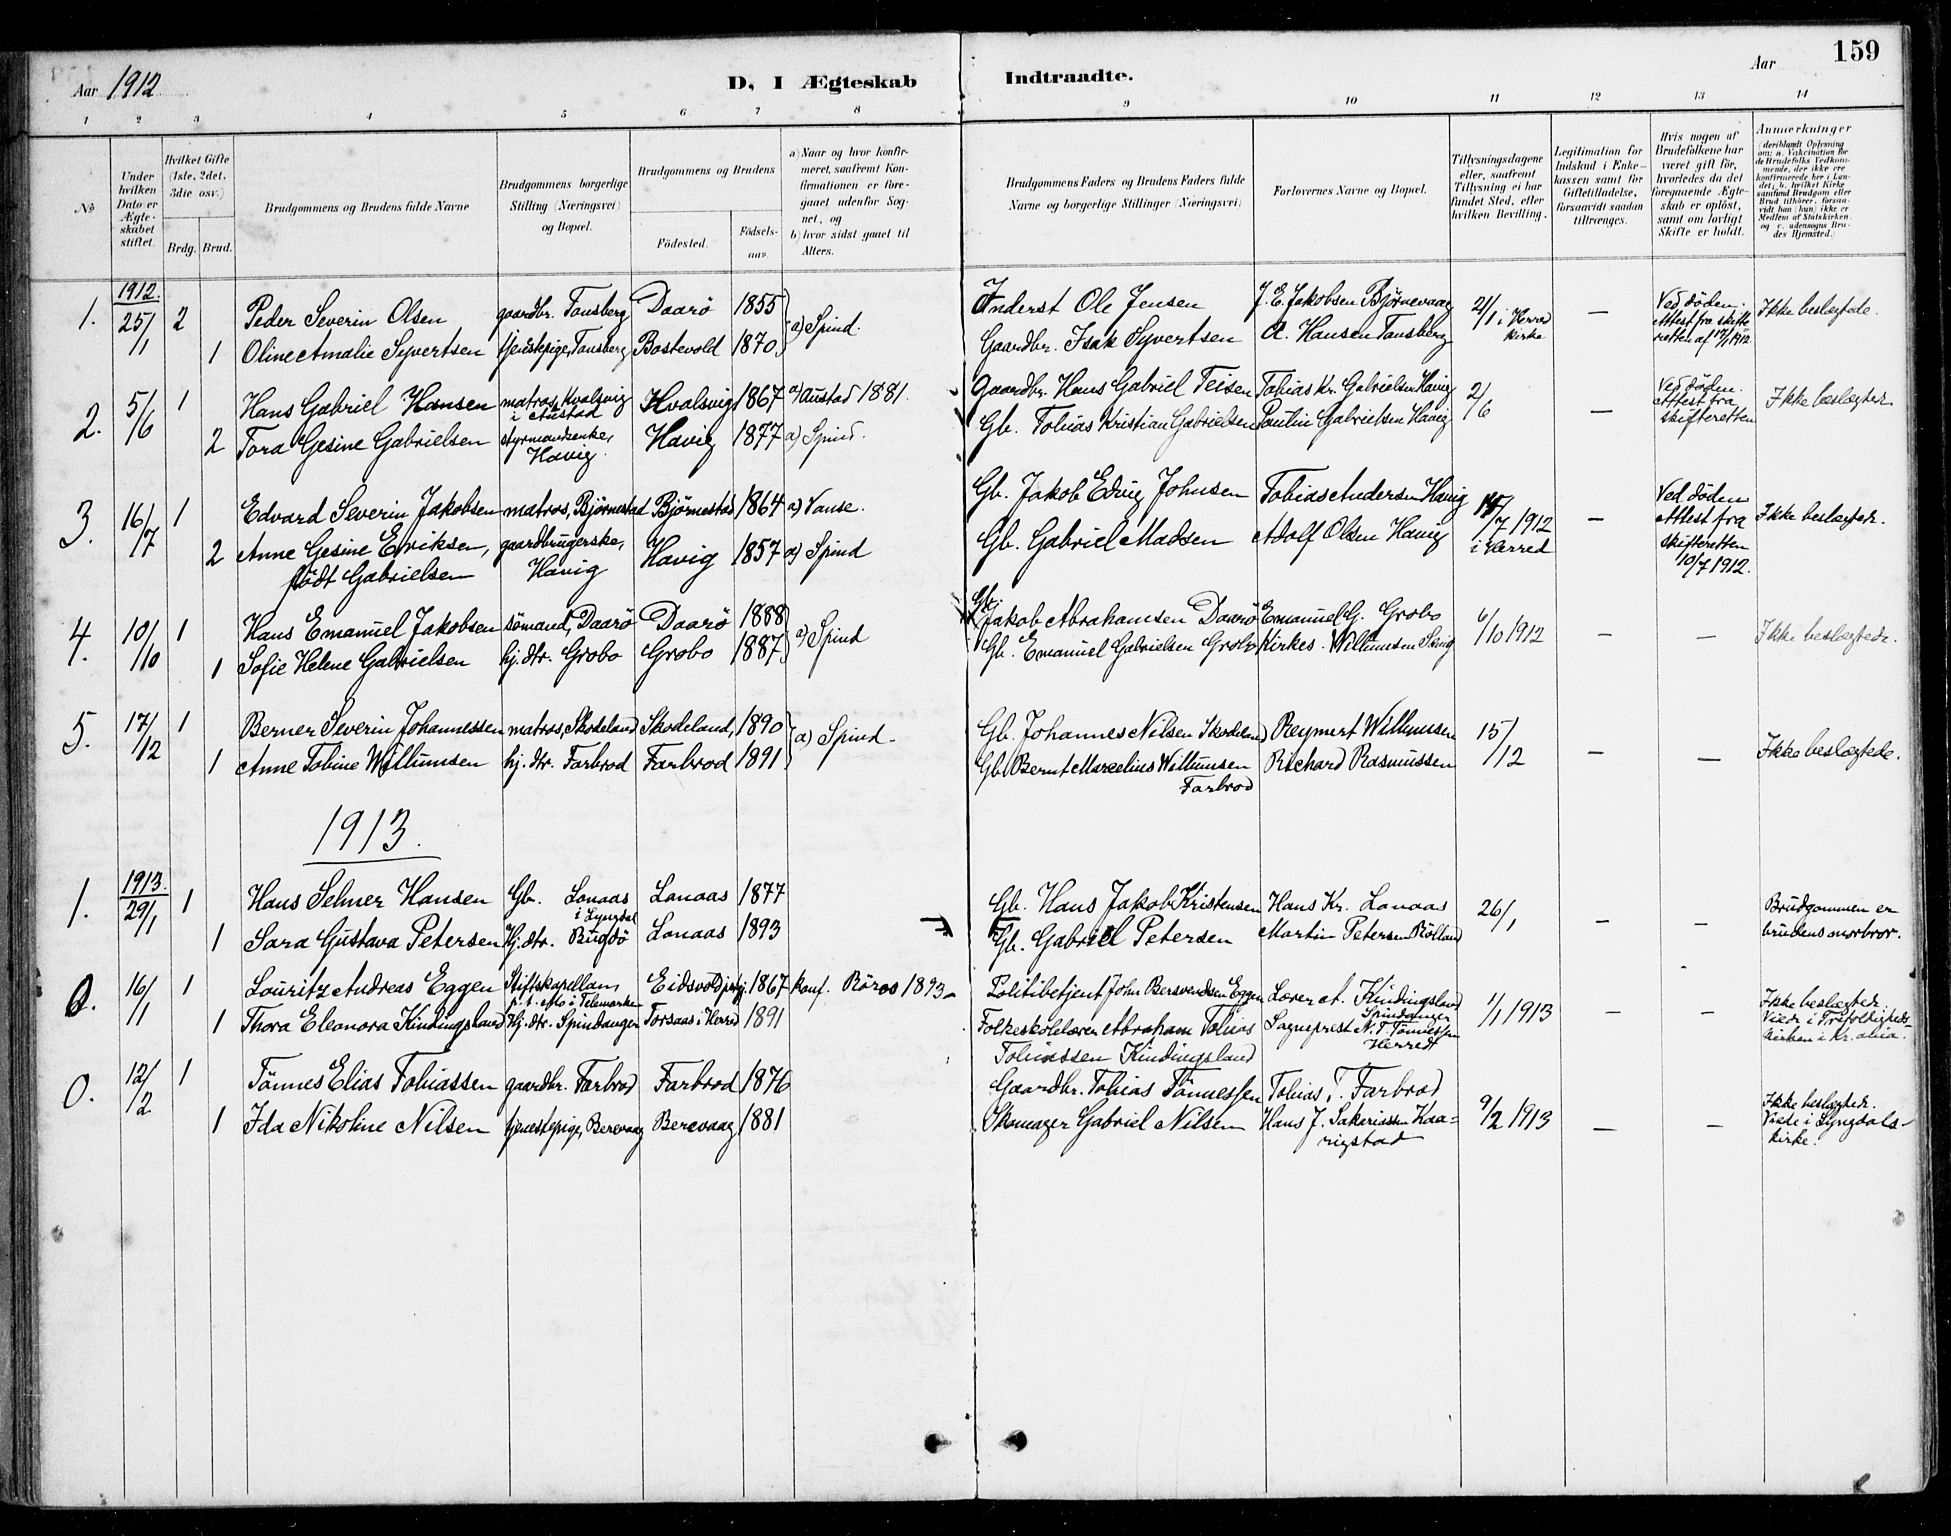 159
Aar 1912
D, I Ægteskab Indtraadte.
Aar
1 2 3 4 5 6 7 8 9 10 11 12 13 14
No
Under hvilken Dato er Ægteskabet stiftet.
Hvilket Gifte (1ste, 2det, 3die osv.)
Brdg. Brud.
Brudgommens og Brudens fulde Navne
Brudgommens borgerlige Stilling (Næringsvei) og Bopæl.
Brudgommens og Brudens
Fødested.
Fødselsaar.
a) Naar og hvor konfirmeret, saafremt Konfirmationen er foregaaet udenfor Sognet, og
b) hvor sidst gaaet til Alters.
Brudgommens Faders og Brudens Faders fulde Navne og borgerlige Stillinger (Næringsvei)
Forlovernes Navne og Bopæl.
Tillysningsdagene eller, saafremt Tillysning ei har fundet Sted, efter hvilken Bevilling.
Legitimation for Indskud i Enkekassen samt for Giftetilladelse, forsaavidt saadan tiltrænges.
Hvis nogen af Brudefolkene har været gift før, hvorledes da det foregaaende Ægteskab er opløst, samt om lovligt Skifte er holdt.
Anmerkninger (deriblandt Oplysning om: a. Vakcination for de Brudefolks Vedkommende, der ikke ere konfirmerede her i Landet; b. hvilket Kirkesamfund Brudgom eller Brud tilhører, forsaavidt han (hun) ikke er Medlem af Statskirken, og c. udensogns Brudes Hjemsted.)
1912.
1. 25/1 2 Peder Severin Olsen gaardbr. Tansberg Daarö 1855 a) Spind. Inderst Ole Jensen J. E. Jakobsen Björnevaag 21/1 i Herred kirke — Ved döden. Attest fra skifteretten af 17/1 1912. Ikke beslægtede.
1 Oline Amalie Syvertsen tjenestepige, Tansberg Bostevold 1870 Gaardbr. Isak Syvertsen A. Hansen Tansberg
2. 5/6 1 Hans Gabriel Hansen matros, Kvalsvig i Austad Kvalsvig 1867 a) Austad 1881. Gaardbr. Hans Gabriel Teisen Tobias Kr. Gabrielsen Havig 2/6 — Ved döden. Attest fra skifteretten Ikke beslægtede.
2 Tora Gesine Gabrielsen styrmandsenke, Havig. Havig 1877 a) Spind. Gb. Tobias Kristian Gabrielsen Paulin Gabrielsen Havig
3. 16/7 1 Edvard Severin Jakobsen matros, Björnestad Björnestad 1864 a) Vanse. Gb. Jakob Edvig Johnsen Tobias Andersen Havig /7 1912 i Herred — Ved döden Attest fra skifteretten 10/7 1912. Ikke beslægtede.
2 Anne Gesine Eriksen, gaardbrugerske, Havig 1857 a) Spind Gb. Gabriel Madsen Adolf Olsen Havig
födt Gabrielsen Havig
4. 10/10 1 Hans Emanuel Jakobsen sömand, Daarö Daarö 1888 a) Spind Gb. Jakob Abrahamsen Daarö Emanuel G. Grobo 6/10 1912 — — Ikke beslægtede.
1 Sofie Helene Gabrielsen hj. dtr. Grobo Grobo 1887 Gb. Emanuel Gabrielsen Grobo Kirkes. Willumsen
5. 17/12 1 Berner Severin Johannessen matros, Skodeland Skodeland, 1890 a) Spind. Gb. Johannes Nilsen Skodeland Reymert Willumsen 15/12 — — Ikke beslægtede.
1 Anne Tobine Willumsen hj. dtr. Farbrod Farbrod 1891 Gb. Bernt Marcelius Willumsen Farbrod Richard Rasmussen
1913.
1913.
1. 29/1 1 Hans Selmer Hansen Gb. Lonaas i Lyngdal Lonaas 1877 Gb. Hans Jakob Kristensen Hans Kr. Lonaas 26/1 — — Brudgommen er brudens morbror.
1 Sara Gustava Petersen Hj. dtr. Bugdö Lonaas 1893 Gb. Gabriel Petersen Martin Petersen Rölland
0. 16/1 1 Louritz Andreas Eggen Stiftskapellan p. t. Mo i Telemarken Eidsvold prg. 1867 konf. Röros 1893 Politibetjent John Bersvendsen Eggen Lærer A. Kindingsland Spindanger 1/1 1913 — — Ikke beslægtede. Viede i Trefoldighedskirken i Kr.ania.
1 Thora Eleonora Kindingsland Hj. dtr. Spindanger Torsaas i Herred 1891 Folkeskolelærer Abraham Tobias Tobiassen Kindingsland Sogneprest N. T. Tönnessen Herredt
0. 12/2 1 Tönnes Elias Tobiassen gaardbr. Farbrod Farbrod 1876 Gaardbr. Tobias Tönnessen Tobias T. Farbrod 9/2 1913 — — Ikke beslægtede. Viede i Lyngdals kirke.
1 Ida Nikoline Nilsen tjenestepige, Berevaag Berevaag 1881 Skomager Gabriel Nilsen Hans J. Sakariassen Kaarigstad